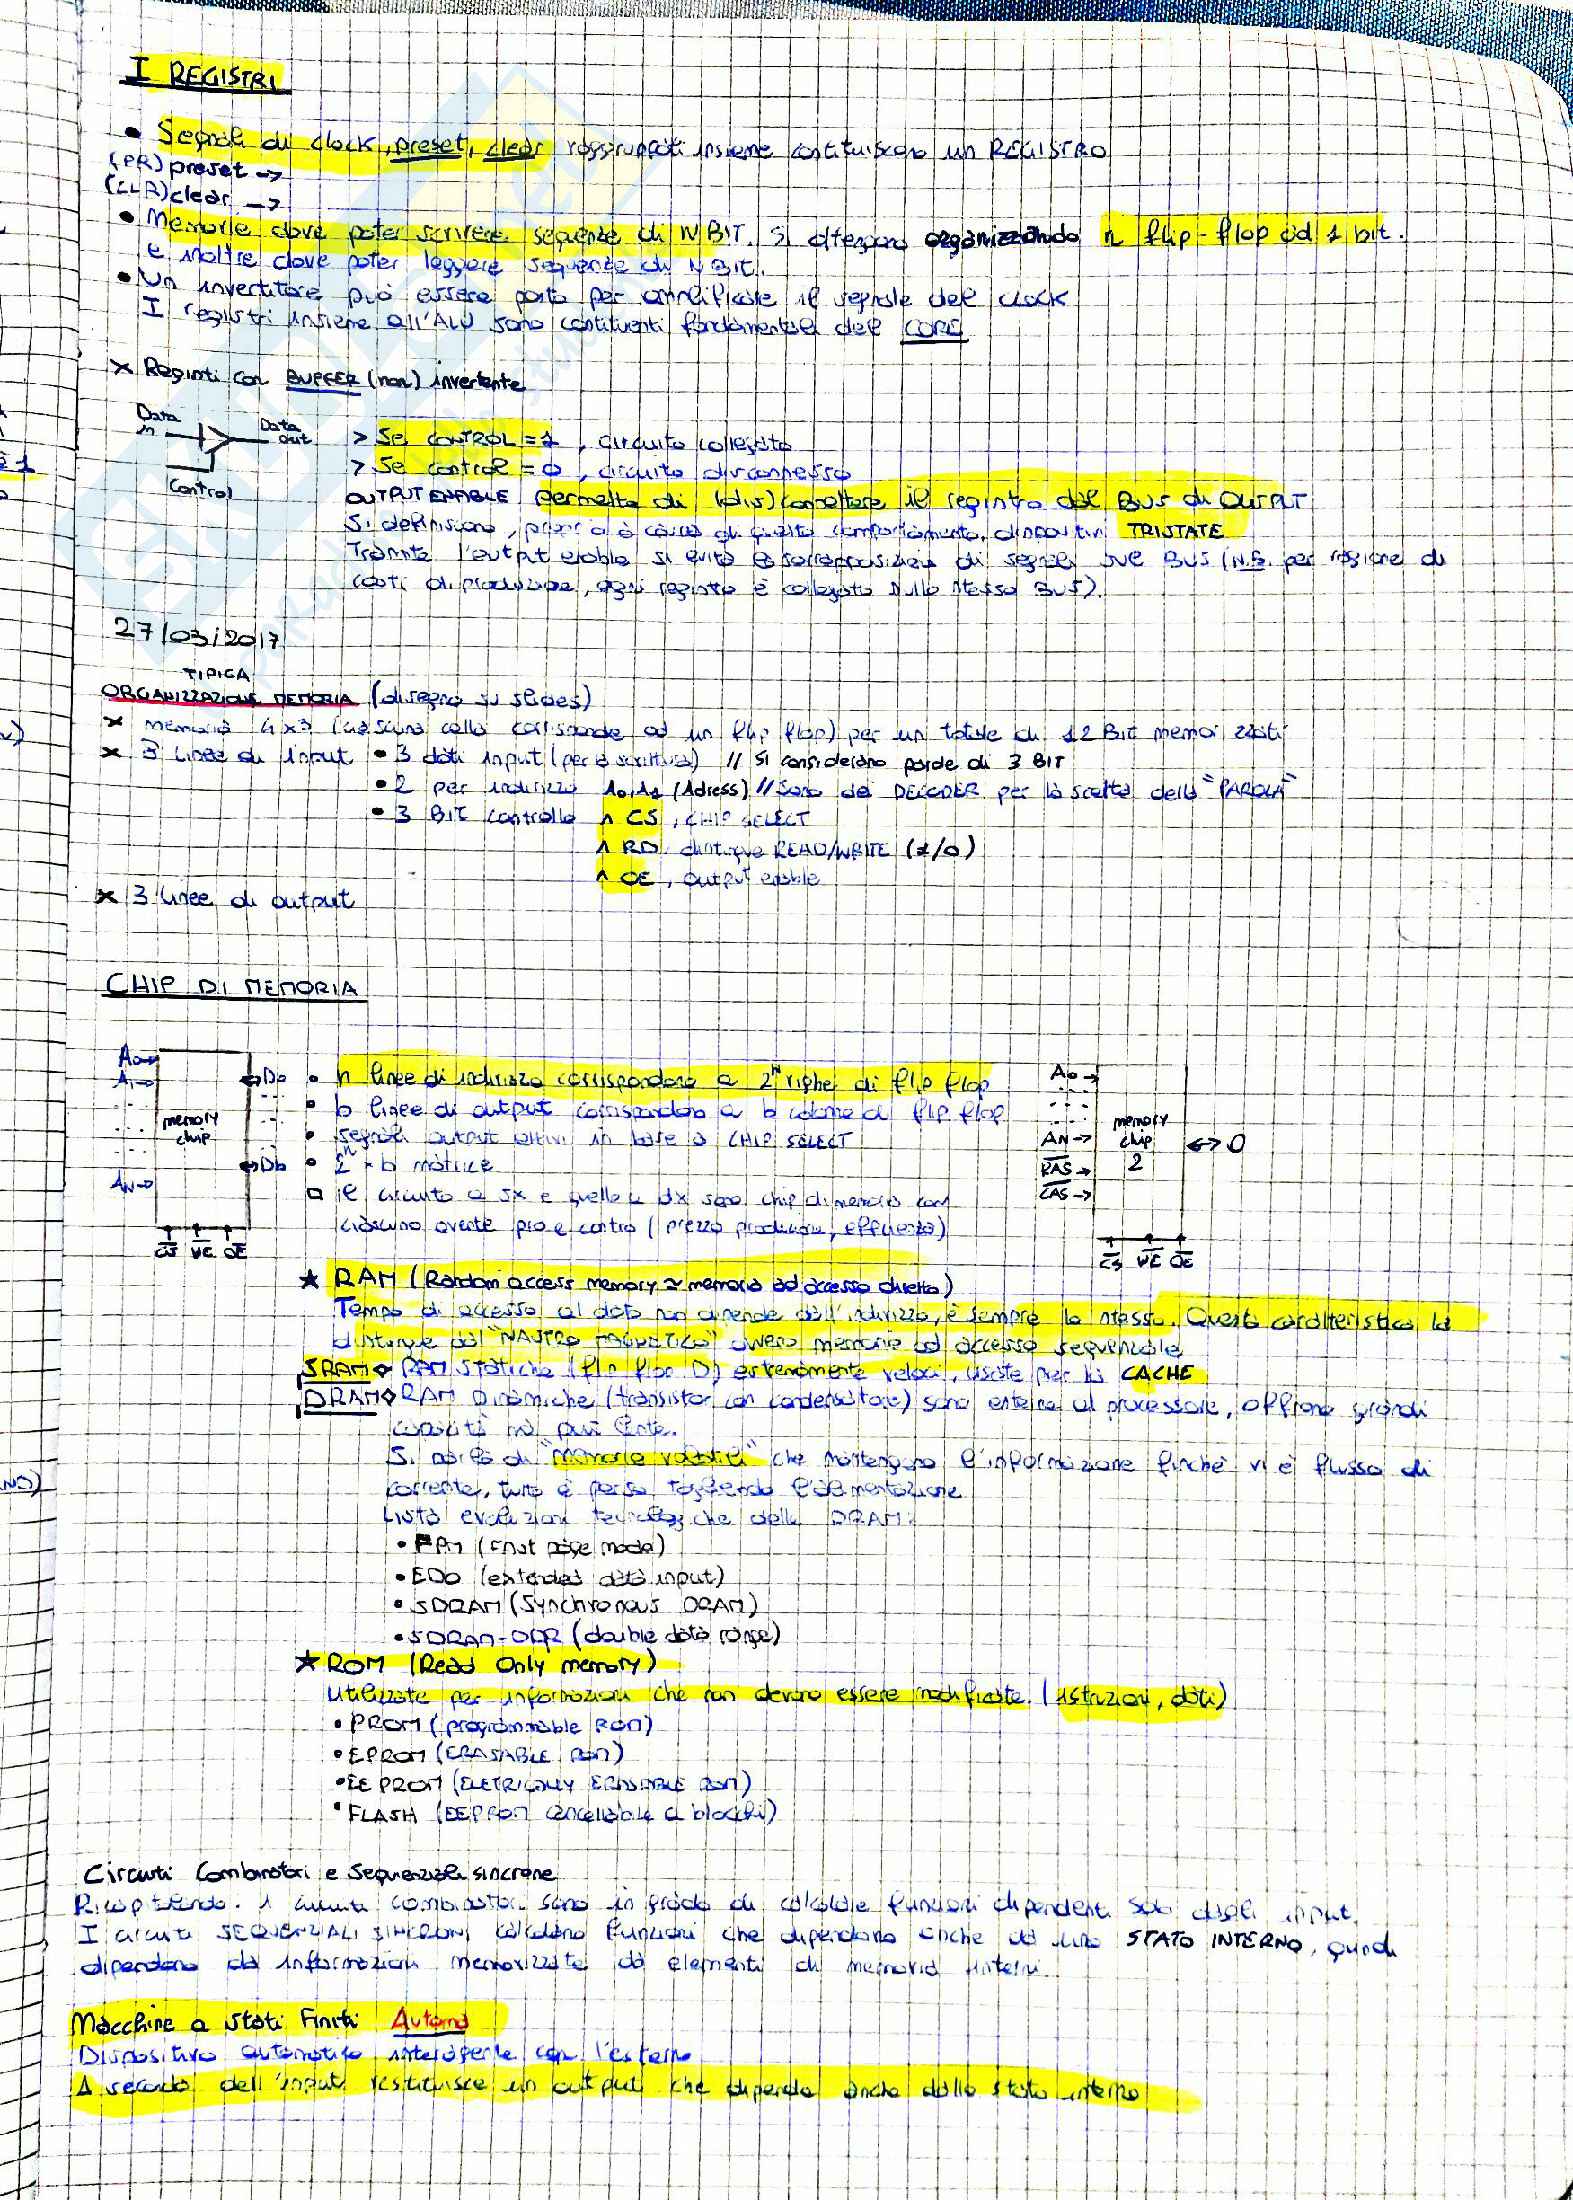 I REGISTRI
• Segnali di clock, preset, clear raggruppati insieme costituiscono un REGISTRO
(PR) preset ->
(CLR) clear ->
• Memorie dove poter scrivere sequenze di N BIT. Si ottengono organizzando n flip-flop ad 1 bit.
e inoltre dove poter leggere sequenze di N BIT.
• Un invertitore può essere posto per amplificare il segnale del clock
I registri insieme all'ALU sono costituenti fondamentali del CORE
x Registri con BUFFER (non) invertente
Data in
Data out
Control
> Se CONTROL = 1, circuito collegato
> Se control = 0, circuito disconnesso
OUTPUT ENABLE permette di (dis)connettere il registro dal BUS di OUTPUT
Si definiscono, proprio a causa di questo comportamento, dispositivi TRISTATE
Tramite l'output enable si evita la sovrapposizione di segnali sul BUS (N.B. per ragione di
costi di produzione, ogni registro è collegato sullo stesso BUS).
27/03/2017
TIPICA
ORGANIZZAZIONE MEMORIA (disegno su slides)
x memoria 4x3 (ciascuna cella corrisponde ad un flip flop) per un totale di 12 Bit memorizzati
x 3 linee di input • 3 dati input (per la scrittura) // si considerano parole di 3 BIT
• 2 per indirizzo A0,A1 (Adress) // Sono dei DECODER per la scelta della "PAROLA"
• 3 BIT controllo ^ CS, CHIP SELECT
^ RD, distingue READ/WRITE (1/0)
^ OE, output enable
x 3 linee di output
CHIP DI MEMORIA
A0
A1
AN
memory chip
D0
Db
CS WE OE
• n linee di indirizzo corrispondono a 2^n righe di flip flop
• b linee di output corrispondono a b colonne di flip flop
• segnali output attivi in base a CHIP SELECT
• 2^n * b matrice
□ il circuito a sx e quello a dx sono chip di memoria con
ciascuno avente pro e contro (prezzo produzione, efficienza)
A0
AN
RAS
CAS
memory chip 2
<-> D
CS WE OE
★ RAM (Random access memory ~ memoria ad accesso diretto)
Tempo di accesso al dato non dipende dall'indirizzo, è sempre lo stesso. Questa caratteristica la
distingue dal "NASTRO MAGNETICO" ovvero memoria ad accesso sequenziale
SRAM RAM statiche (flip flop D) estremamente veloci, usate per la CACHE
DRAM RAM Dinamiche (transistor con condensatore) sono esterne al processore, offrono grandi
capacità ma più lente.
Si parla di "Memorie volatili" che mantengono l'informazione finchè vi è flusso di
corrente, tutto è perso togliendo l'alimentazione
Lista evoluzioni tecnologiche delle DRAM:
• FPM (Fast page mode)
• EDO (extended data input)
• SDRAM (Synchronous DRAM)
• SDRAM-DDR (double data range)
★ ROM (Read Only memory)
Utilizzate per informazioni che non devono essere modificate. (istruzioni, dati)
• PROM (programmable ROM)
• EPROM (ERASABLE ROM)
• EEPROM (ELETRICALLY ERASABLE ROM)
• FLASH (EEPROM cancellabile a blocchi)
Circuiti Combinatori e Sequenziali sincrone
Ricapitolando. I circuiti combinatori sono in grado di calcolare funzioni dipendenti solo dagli input.
I circuiti SEQUENZIALI SINCRONI calcolano funzioni che dipendono anche da uno STATO INTERNO, quindi
dipendono da informazioni memorizzate da elementi di memoria interni.
Macchine a stati Finiti Automa
Dispositivo automatico interagente con l'esterno
A seconda dell'input restituisce un output che dipende anche dallo stato interno